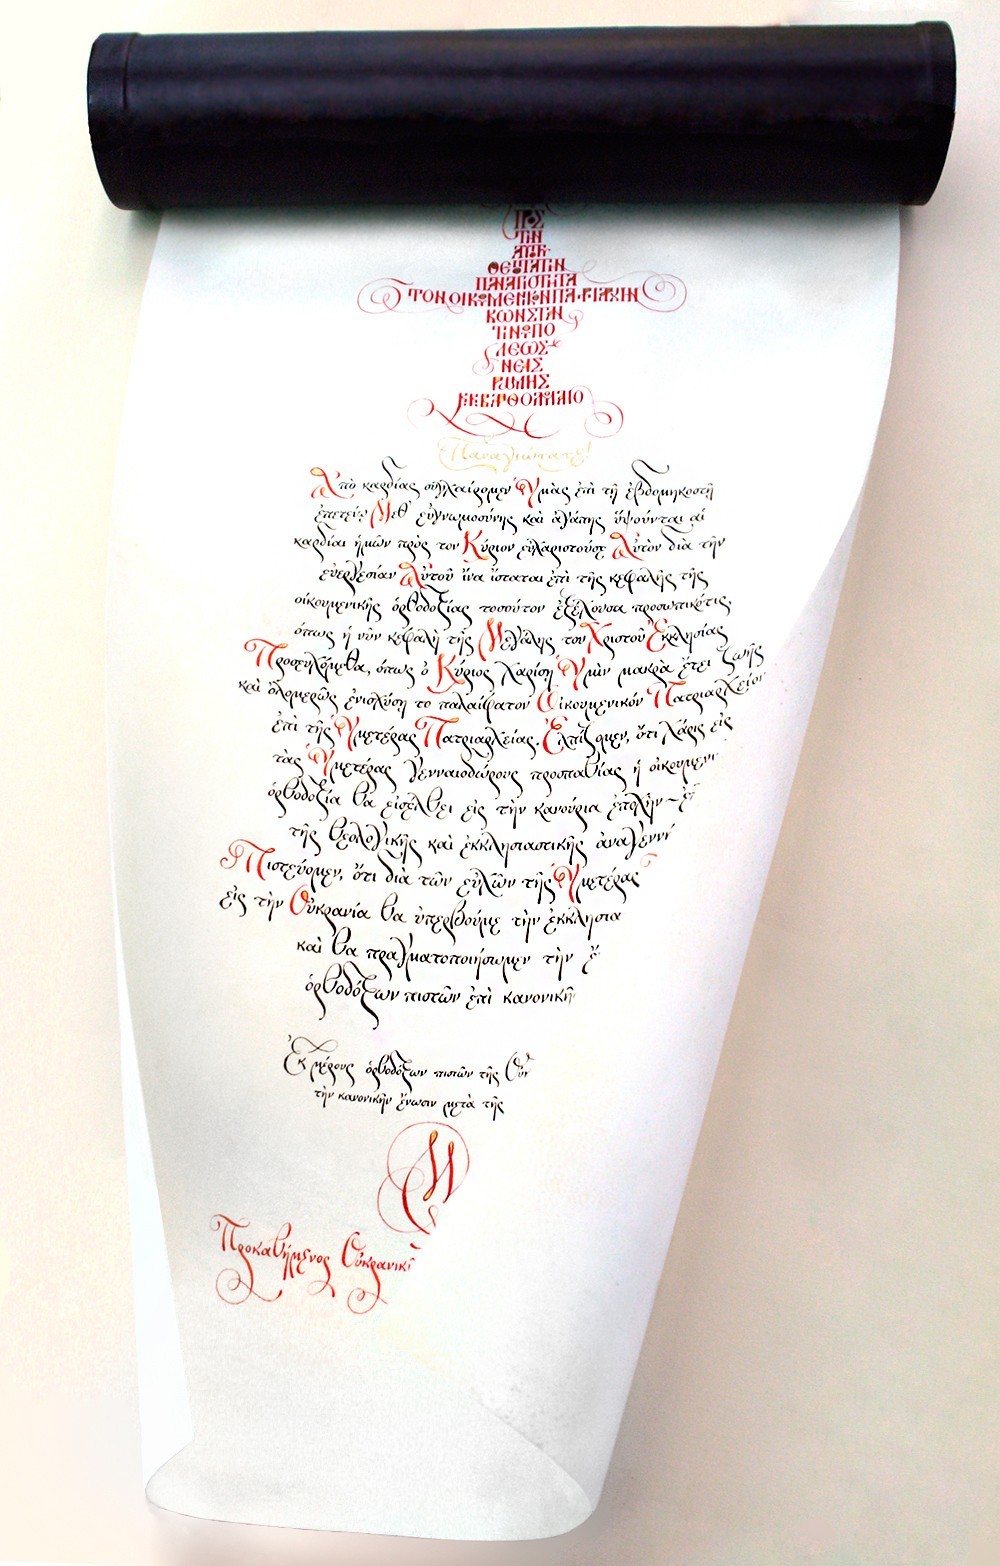 ΠΡΟΣ
ΤΗΝ
ΑΥΤΟΥ
ΘΕΙΟΤΑΤΗΝ
ΠΑΝΑΓΙΟΤΗΤΑ
ΤΟΝ ΟΙΚΟΥΜΕΝΙΚΟΝ ΠΑΤΡΙΑΡΧΗΝ
ΚΩΝΣΤΑΝ
ΤΙΝΟΥΠΟ
ΛΕΩΣ
ΝΕΑΣ
ΡΩΜΗΣ
Κ.Κ. ΒΑΡΘΟΛΟΜΑΙΟ
Παναγιώτατε!
Ἀπὸ καρδίας συγχαίρομεν Ὑμᾶς ἐπὶ τῇ ἑβδομηκοστῇ
ἐπετείῳ Μεθ' εὐγνωμοσύνης καὶ ἀγάπης ὑψούνται αἱ
καρδίαι ἡμῶν πρὸς τον Κύριον εὐχαριστοῦσε Αὐτὸν διὰ τὴν
εὐεργεσίαν Αὐτοῦ ἵνα ἵσταται ἐπὶ τῆς κεφαλῆς τῆς
οἰκουμενικῆς ὀρθοδοξίας τοσοῦτον ἐξέχουσα προσωπικότις
ὅπως ἡ νῦν κεφαλὴ τῆς Μεγάλης του Χριστοῦ Ἐκκλησίας
Προσευχόμεθα, ὅπως ὁ Κύριος χαρίση Ὑμῖν μακρὰ ἔτει ζωῆς
καὶ ὁλομερῶς ἐνισχύση το παλαίφατον Οἰκουμενικόν Πατριαρχεῖον
ἐπὶ τῆς Ὑμετέρας Πατριαρχείας. Ἐλπίζομεν, ὅτι χάρις εἰς
τὰς Ὑμετέρας γενναιοδώρους προσπαθίας ἡ οἰκουμενι
ὀρθοδοξία θα εἰσέλθει εἰς τὴν κανούρια ἐποχήν ~
τῆς θεολογικῆς καὶ ἐκκλησιαστικῆς ἀναγενν
Πιστεύομεν, ὅτι διὰ τῶν εὐχῶν τῆς Ὑμετέρας
εἰς τὴν Οὐκρανία θα ὑπερβούμε τὴν ἐκκλησια
καὶ θα πραγματοποιήσωμεν τὴν ἕ
ὀρθοδόξων πιστῶν ἐπὶ κανονικῆ
Ἐκ μέρους ὀρθοδόξων πιστῶν τῆς Οὐκ
τὴν κανονικὴν ἕνωσιν μετὰ τῆς
Προκαθήμενος Οὐκρανικῆ